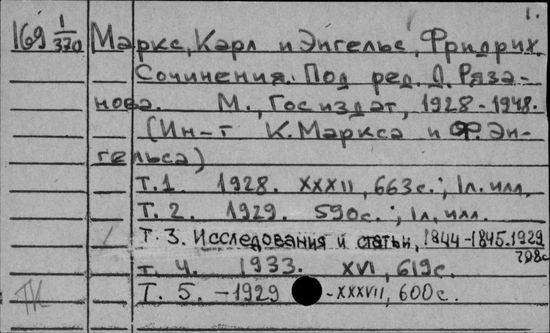 1.
169 1/370 Маркс, Карл и Энгельс, Фридрих
Сочинения. Под ред. Д. Ряза-
нова. М., Госиздат, 1928-1948.
(Ин-т К. Маркса и Ф. Эн-
гельса)
Т. 1. 1928. XXXII, 663с.; 1л. илл.
Т. 2. 1929. 590с.; 1л. илл.
Т. 3. Исследования и статьи, 1844-1845. 1929
798с
т. 4. 1933. XVI, 619с.
ПК Т. 5. -1929 -XXXVII, 600с.